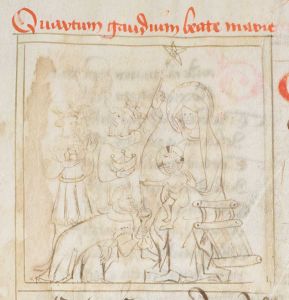 Quartum gaudium beate marie